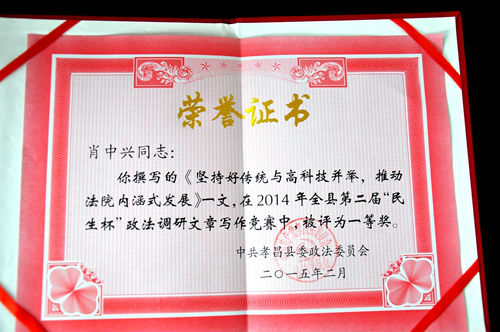 荣誉证书
肖中兴同志：
你撰写的《坚持好传统与高科技并举，推动
法院内涵式发展》一文，在2014年全县第二届“民
生杯”政法调研文章写作竞赛中，被评为一等奖。
中共孝昌县委政法委员会
二〇一五年二月